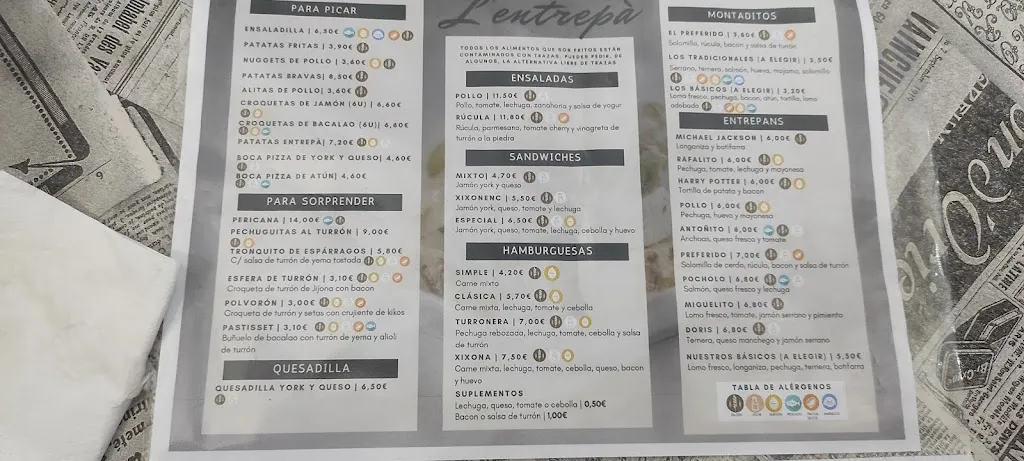 PARA PICAR
ENSALADILLA | 6,50€
PATATAS FRITAS | 3,90€
NUGGETS DE POLLO | 3,60€
PATATAS BRAVAS| 8,50€
ALITAS DE POLLO| 3,60€
CROQUETAS DE JAMÓN (6U) | 6,60€
CROQUETAS DE BACALAO (6U)| 6,60€
PATATAS ENTREPÀ | 7,20€
BOCA PIZZA DE YORK Y QUESO| 4,60€
BOCA PIZZA DE ATÚN| 4,60€
PARA SORPRENDER
PERICANA | 14,00€
PECHUGUITAS AL TURRÓN | 9,00€
TRONQUITO DE ESPÁRRAGOS | 5,80€
C/ salsa de turrón de yema tostada
ESFERA DE TURRÓN | 3,10€
Croqueta de turrón de Jijona con bacon
POLVORÓN | 3,00€
Croqueta de turrón y setas con crujiente de kikos
PASTISSET | 3,10€
Buñuelo de bacalao con turrón de yema y alioli
de turrón
QUESADILLA
QUESADILLA YORK Y QUESO | 6,50€
L'entrepà
TODOS LOS ALIMENTOS QUE SON FRITOS ESTÁN
CONTAMINADOS CON TRAZAS, PUEDES PEDIR, DE
ALGUNOS, LA ALTERNATIVA LIBRE DE TRAZAS
ENSALADAS
POLLO | 11,50€
Pollo, tomate, lechuga, zanahoria y salsa de yogur
RÚCULA | 11,80€
Rúcula, parmesano, tomate cherry y vinagreta de
turrón a la piedra
SANDWICHES
MIXTO| 4,70€
Jamón york y queso
XIXONENC | 5,50€
Jamón york, queso, tomate y lechuga
ESPECIAL | 6,50€
Jamón york, queso, tomate, lechuga, cebolla y huevo
HAMBURGUESAS
SIMPLE | 4,20€
Carne mixta
CLÁSICA | 5,70€
Carne mixta, lechuga, tomate y cebolla
TURRONERA | 7,00€
Pechuga rebozada, lechuga, tomate, cebolla y salsa
de turrón
XIXONA | 7,50€
Carne mixta, lechuga, tomate, cebolla, queso, bacon
y huevo
SUPLEMENTOS
Lechuga, queso, tomate o cebolla | 0,50€
Bacon o salsa de turrón | 1,00€
MONTADITOS
EL PREFERIDO | 3,60€
Solomillo, rúcula, bacon y salsa de turrón
LOS TRADICIONALES (A ELEGIR) | 3,50€
Serrano, ternera, salmón, hueva, mojama, solomillo
LOS BÁSICOS (A ELEGIR) | 3,20€
Lomo fresco, pechuga, bacon, atún, tortilla, lomo
adobado
ENTREPANS
MICHAEL JACKSON | 6,00€
Longaniza y botifarra
RAFALITO | 6,00€
Pechuga, tomate, lechuga y mayonesa
HARRY POTTER | 6,00€
Tortilla de patata y bacon
POLLO | 6,00€
Pechuga, huevo y mayonesa
ANTOÑITO | 6,00€
Anchoas, queso fresco y tomate
PREFERIDO | 7,00€
Solomillo de cerdo, rúcula, bacon y salsa de turrón
POCHOLO | 6,80€
Salmón, queso fresco y lechuga
MIGUELITO | 6,80€
Lomo fresco, tomate, jamón serrano y pimiento
DORIS | 6,80€
Ternera, queso manchego y jamón serrano
NUESTROS BÁSICOS (A ELEGIR) | 5,50€
Lomo fresco, longaniza, pechuga, ternera, botifarra
TABLA DE ALÉRGENOS